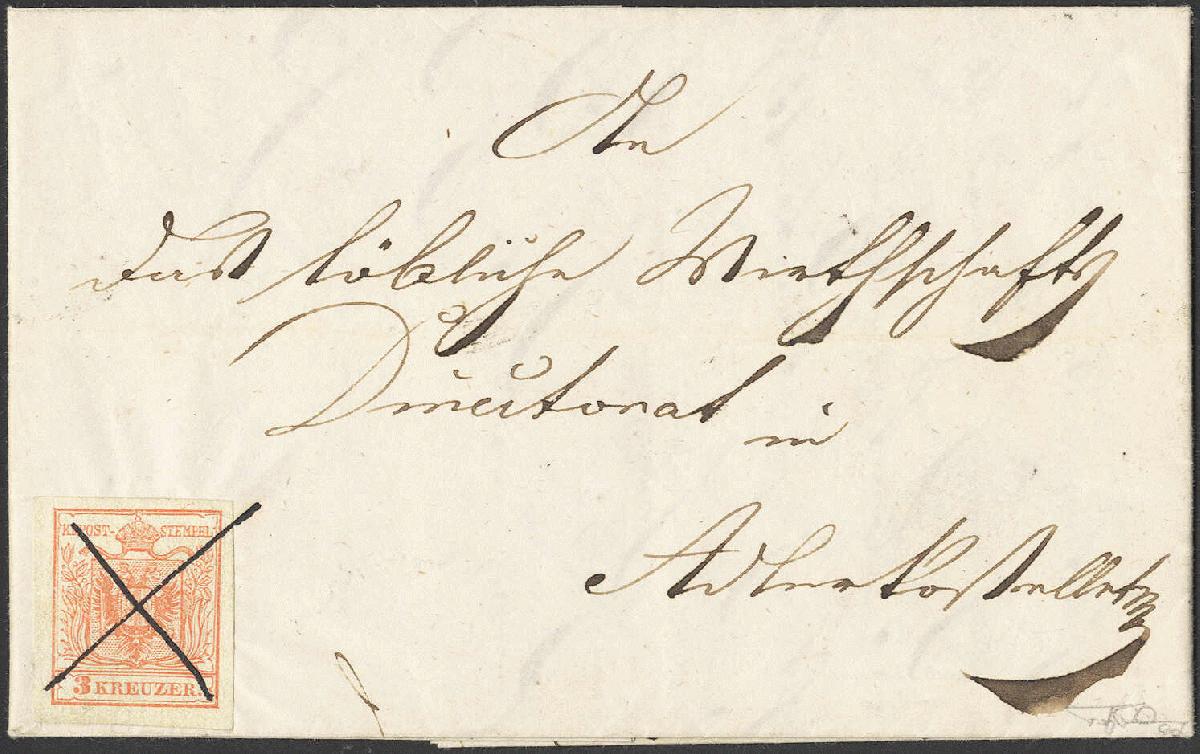 An
das löbliche Wirthschafts
Directorat
in
Adlerkostelletz
K.K. POST-STEMPEL
3 KREUZER.